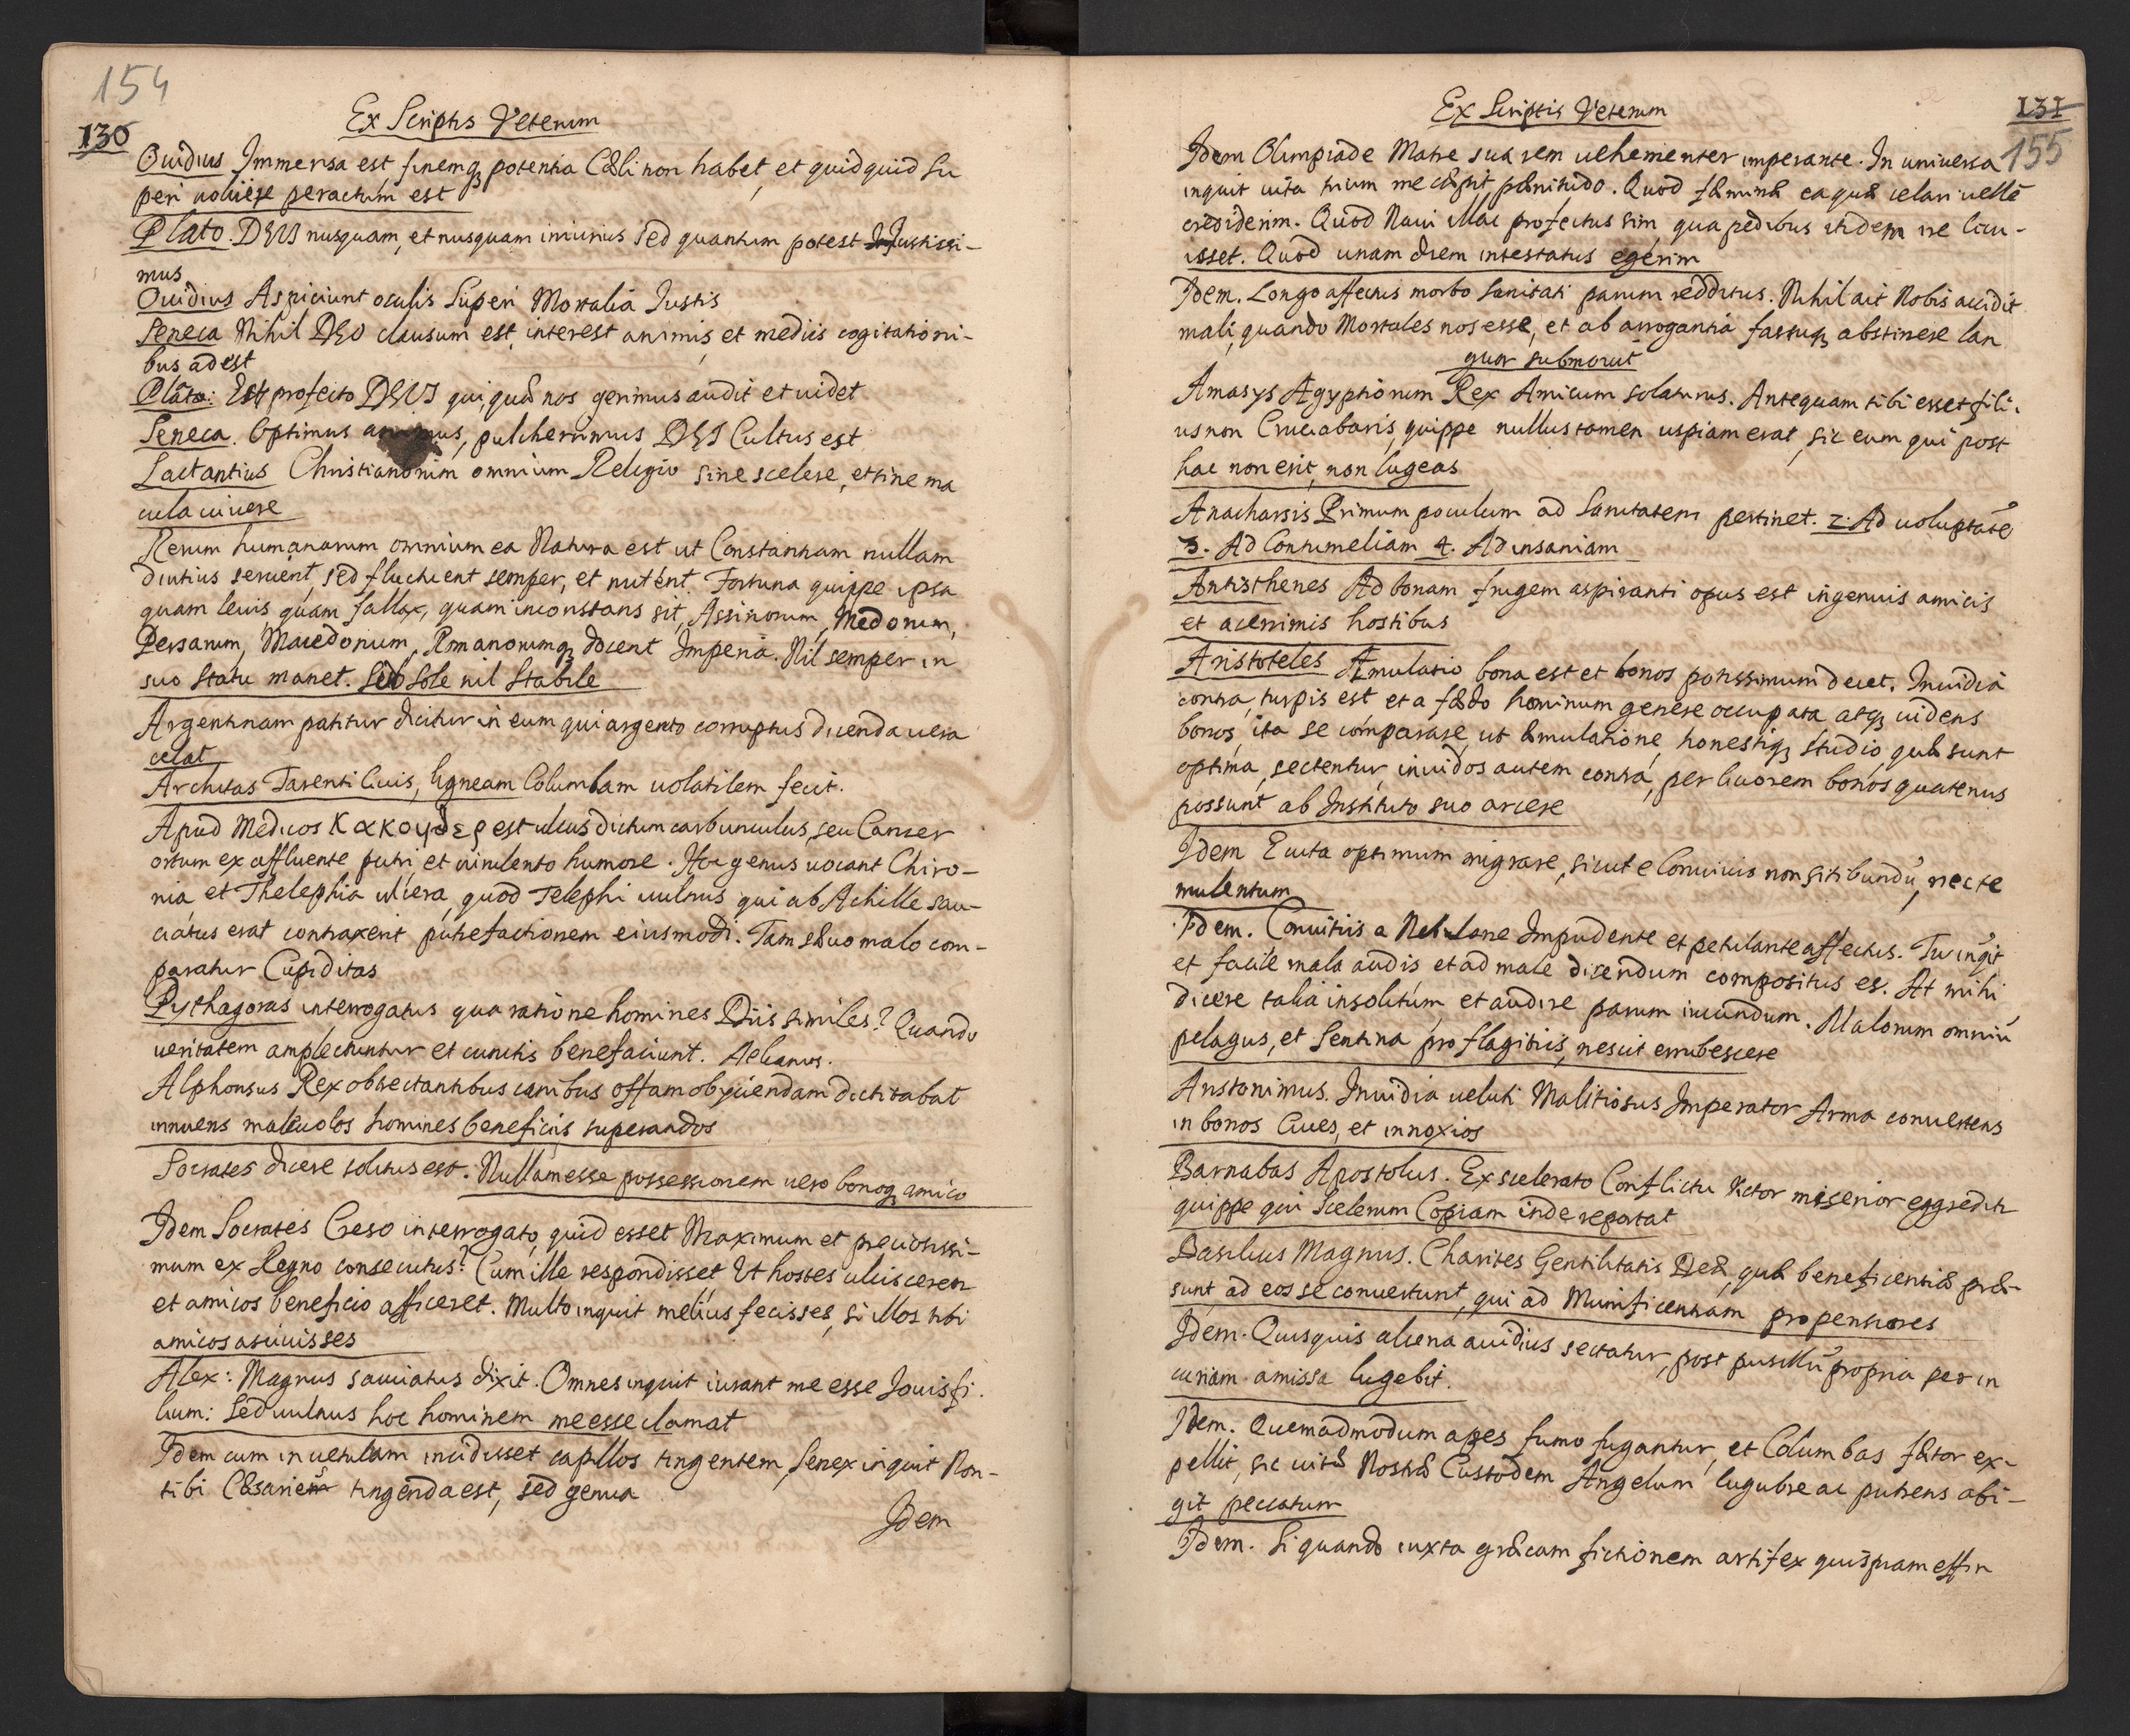 154
130
Ex Scriptis Veterum
Ouidius Immensa est finemq; potentia Cæli non habet, et quidquid Su
peri uoluere peractum est
Plato. DEUS nusquam, et nusquam iniurius sed quantum potest Justissi-
mus
Ouidius Aspiciunt oculis Superi Mortalia Justis
Seneca Nihil DEO clausum est, interest animis, et mediis cogitationi-
bus adest
Plato: Est profecto DEUS qui, quæ nos gerimus audit et uidet
Seneca. Optimus animus, pulcherrimus DEI Cultus est
Lactantius Christianorum omnium Religio sine scelere, et sine ma
cula uiuere
Rerum humanarum omnium ea Natura est ut Constantiam nullam
diutius seruent, sed fluctuent semper, et nutent. Fortuna quippe ipsa
quam leuis, quam fallax, quam inconstans sit, Assiriorum, Medorum,
Persarum, Macedonum, Romanorumq; docent Imperia. Nil semper in
suo Statu manet. Sub Sole nil Stabile
Argentinam patitur dicitur in eum qui argento corruptus dicenda uera
celat
Architas Tarenti Ciuis, ligneam Columbam uolatilem fecit.
Apud Medicos est ulcus dictum carbunculus, seu Cancer
ortum ex affluente putri, et uirulento humore. Hoc genus uocant Chiro-
nia, et Thelephia ulcera, quod Telephi uulnus qui ab Achille sau-
ciatus erat contraxerit putrefactionem eiusmodi. Tam sæuo malo com-
paratur Cupiditas
Pythagoras interrogatus qua ratione homines Diis similes? Quando
ueritatem amplectuntur et cunctis benefaciunt. Aelianus.
Alphonsus Rex oblectantibus canibus offam obyciendam dictitabat
innuens maleuolos homines beneficiis superandos
Socrates dicere solitus est. Nullam esse possessionem uero bonoq; amico
Idem Socrates Creso interrogato, quid esset Maximum et preciosissi-
mum ex Regno consecutus? Cum ille respondisset Ut hostes ulcisceren
et amicos beneficio afficeret. Multo inquit melius fecisses, si illos tibi
amicos asciuisses
Alex: Magnus sauciatus dixit. Omnes inquit iurant me esse Jouis fi-
lium: Sed uulnus hoc hominem me esse clamat
Idem cum in uetulam incidisset capillos tingentem, Senex inquit Non-
tibi Cæsaries tingenda est, sed genua
Idem
Ex Scriptis Veterum
131
155
Idem Olimpiade Matre sua rem uehementer imperante. In uniuersa
inquit uita trium me cæpit pænitudo. Quod fæminæ ea quæ celari uelle
crediderim. Quod Naui illac profectus sim, qua pedibus itidem ire licu-
isset. Quod unam diem intestatus egerim
Idem. Longo affectus morbo Sanitati parum redditus. Nihil ait Nobis accidit
mali, quando Mortales nos esse, et ab arrogantia fastuq; abstinere lan
guor submonuit
Amasys Ægyptiorum Rex Amicum solaturus. Antequam tibi esset fili-
us non Cruciabaris, quippe nullus tamen uspiam erat, sic eum qui post
hac non erit, non lugeas
Anacharsis Primum poculum ad Sanitatem pertinet. 2. Ad uoluptatē
3. Ad Contumeliam 4. Ad insaniam
Antisthenes Ad bonam frugem aspiranti opus est ingenuis amicis
et acerrimis hostibus
Aristoteles Æmulatio bona est et bonos potissimum decet. Inuidia
contra, turpis est et a fædo hominum genere occupata atq; uidens
bonos ita se comparare, ut æmulatione, honestiq; studio, quæ sunt
optima, sectentur, inuidos autem contra, per liuorem bonos quatenus
possunt ab Instituto suo arcere
Idem E uita optimum migrare, sicut e Conuiuio non sitibundū, nec te
mulentum
Idem. Conuitiis a Nebulone Impudente et petulante affectus. Tu inqit
et facile mala audis et ad male dicendum compositus es. At mihi
dicere talia insolitum, et audire parum iucundum. Malorum omniū
pelagus, et Sentina pro flagitiis, nescit errubescere
Aristonimus. Inuidia ueluti Malitiosus Imperator Arma conuertens
in bonos Ciues, et innoxios
Barnabas Apostolus. Ex scelerato Conflictu Victor miserior eggredit
quippe qui Scelerum Copiam inde reportat
Basilius Magnus. Charites Gentilitatis Deæ, quæ beneficentiæ præ-
sunt ad eos se conuertunt, qui ad Munificentiam propensiores
Idem. Quisquis aliena auidius sectatur, post pusillū propria per in
curiam amissa lugebit.
Idem. Quemadmodum apes fumo fugantur, et Columbas fætor ex-
pellit, sic uitæ Nostræ Custodem Angelum lugubre ac putrens abi-
git peccatum
Idem. Si quando iuxta græcam fictionem artifex quispiam effin